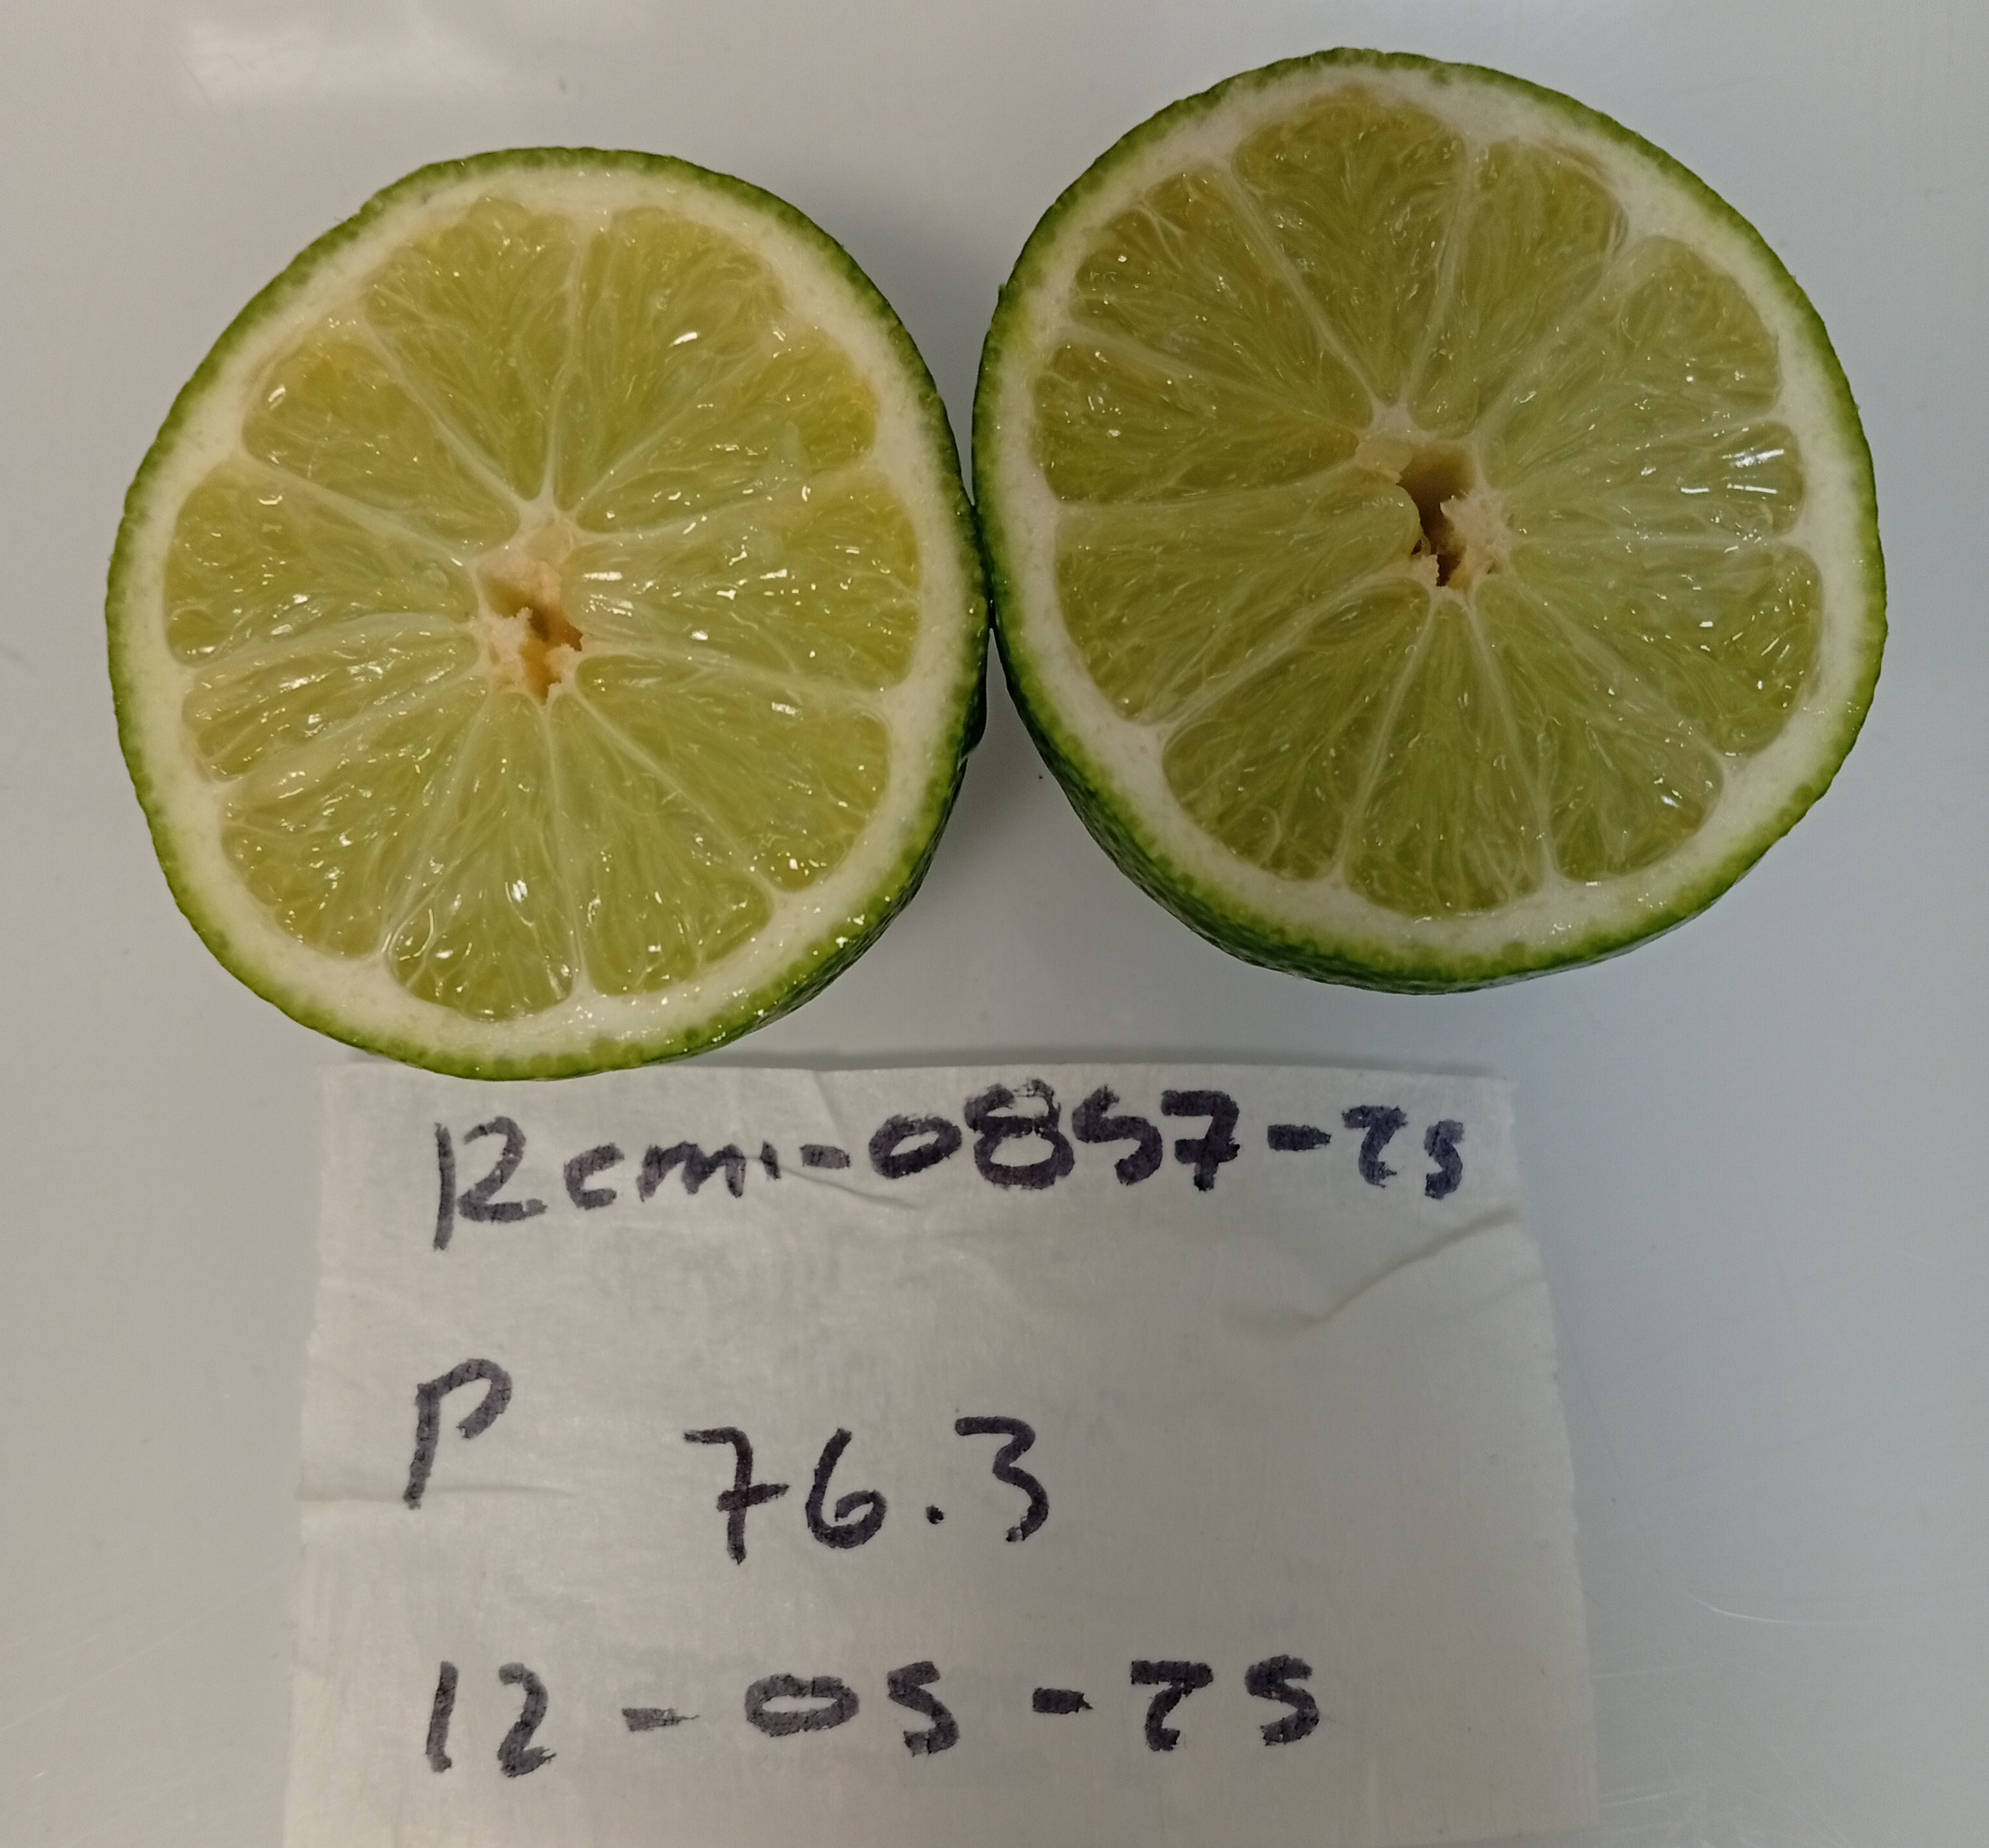 Rcmi-0857-25
P 76.3
12-05-25